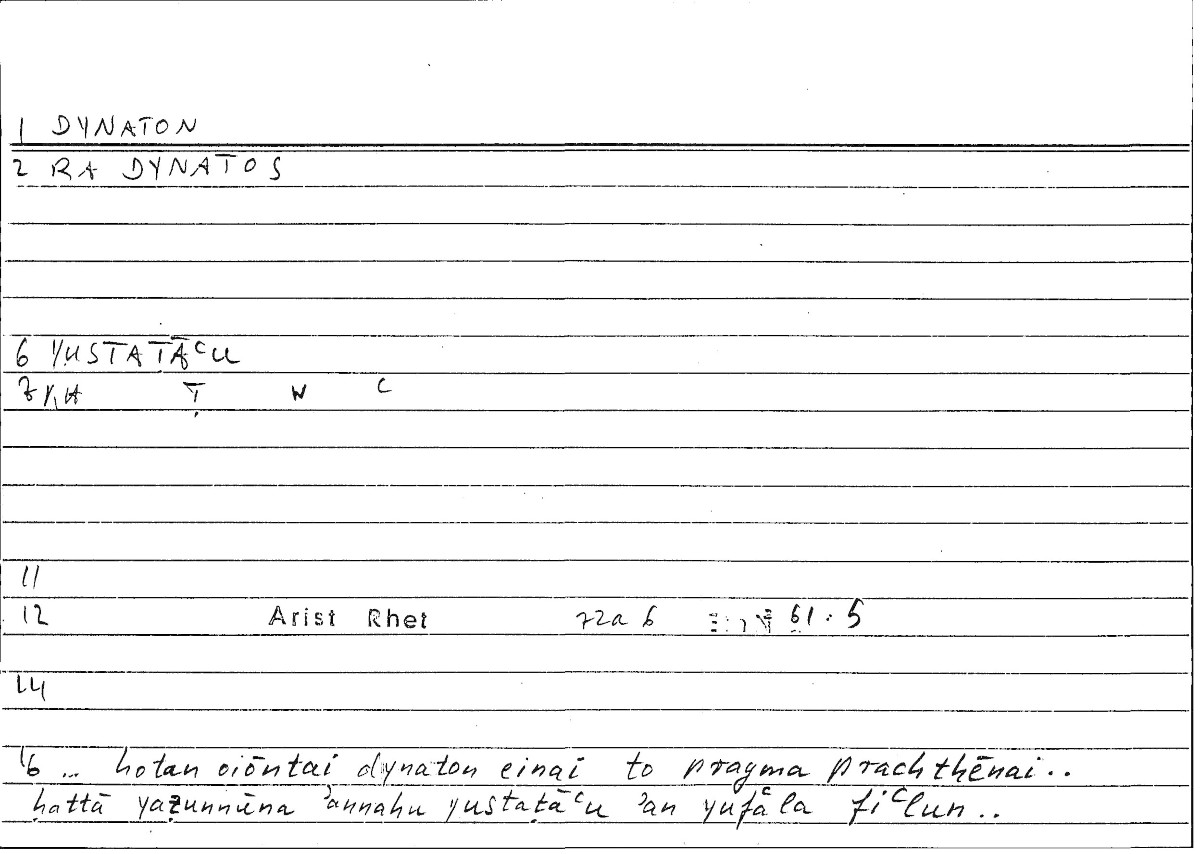 1 DYNATON
2 RA DYNATOS
6 YUSTAṬĀʿU
7 YA Ṭ W ʿ
11
12 Arist Rhet 72a 6 61.5
14
16 ... hotan oiōntai dynaton einai to pragma prachthēnai..
ḥattā yaẓunnūna ʾannahu yustaṭāʿu ʾan yufʿala fiʿlun..